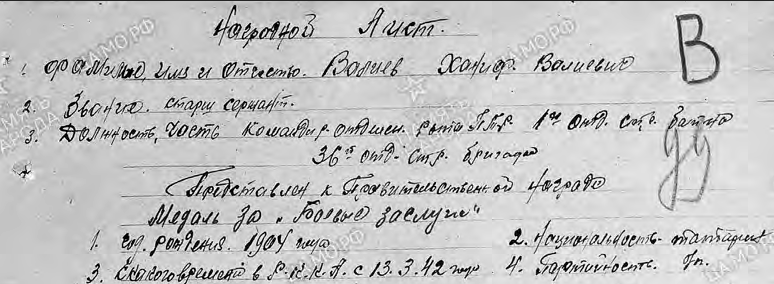 Наградной Лист.
В
1. Фамилию, имя и отчество. Валиев Ханиф. Валиевич
2. Звание. старш сержант.
3. Должность, часть Командир отделен. роты ПТР 1го отд. стр. батна
36й отд. стр. бригады
Представлен к Правительственной награде
Медаль за „Боевые заслуги"
1. год рождения. 1904 года 2. Национальность татарин
3. с какого времени в Р.К.К.А. с 13.3.42 года 4. Партийность.